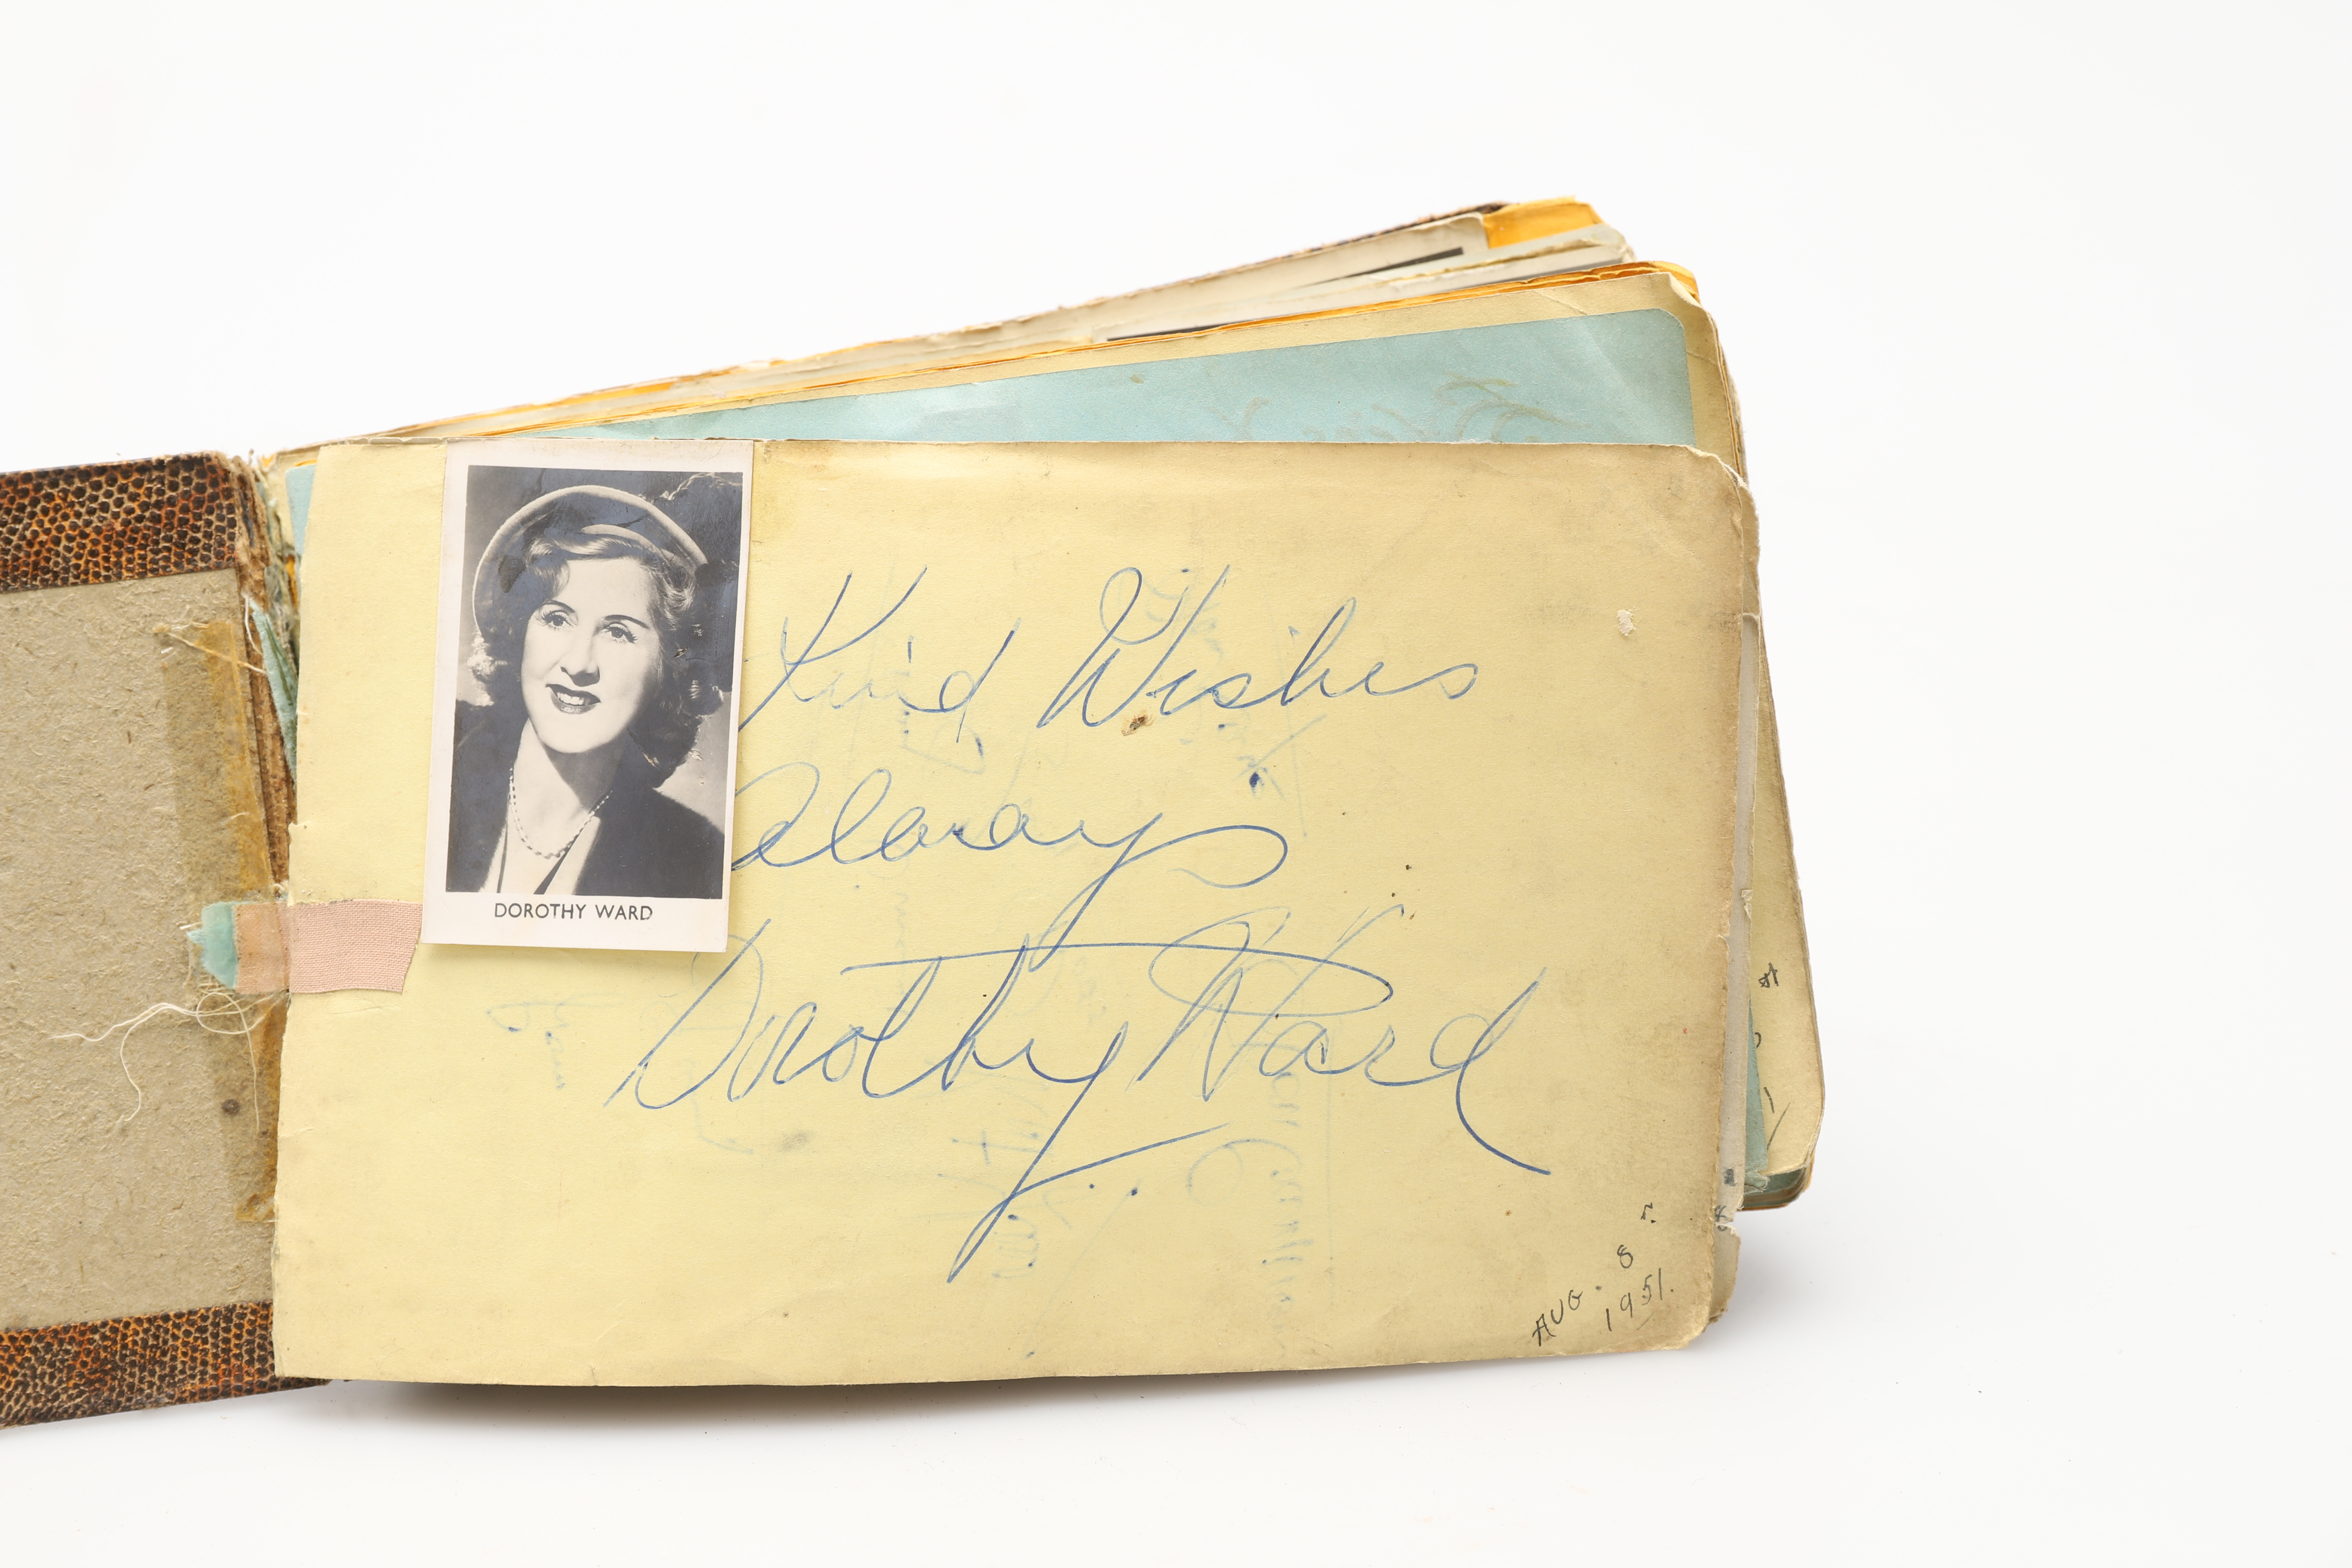 DOROTHY WARD
Kind Wishes
always
Dorothy Ward
AUG. 8
1951.